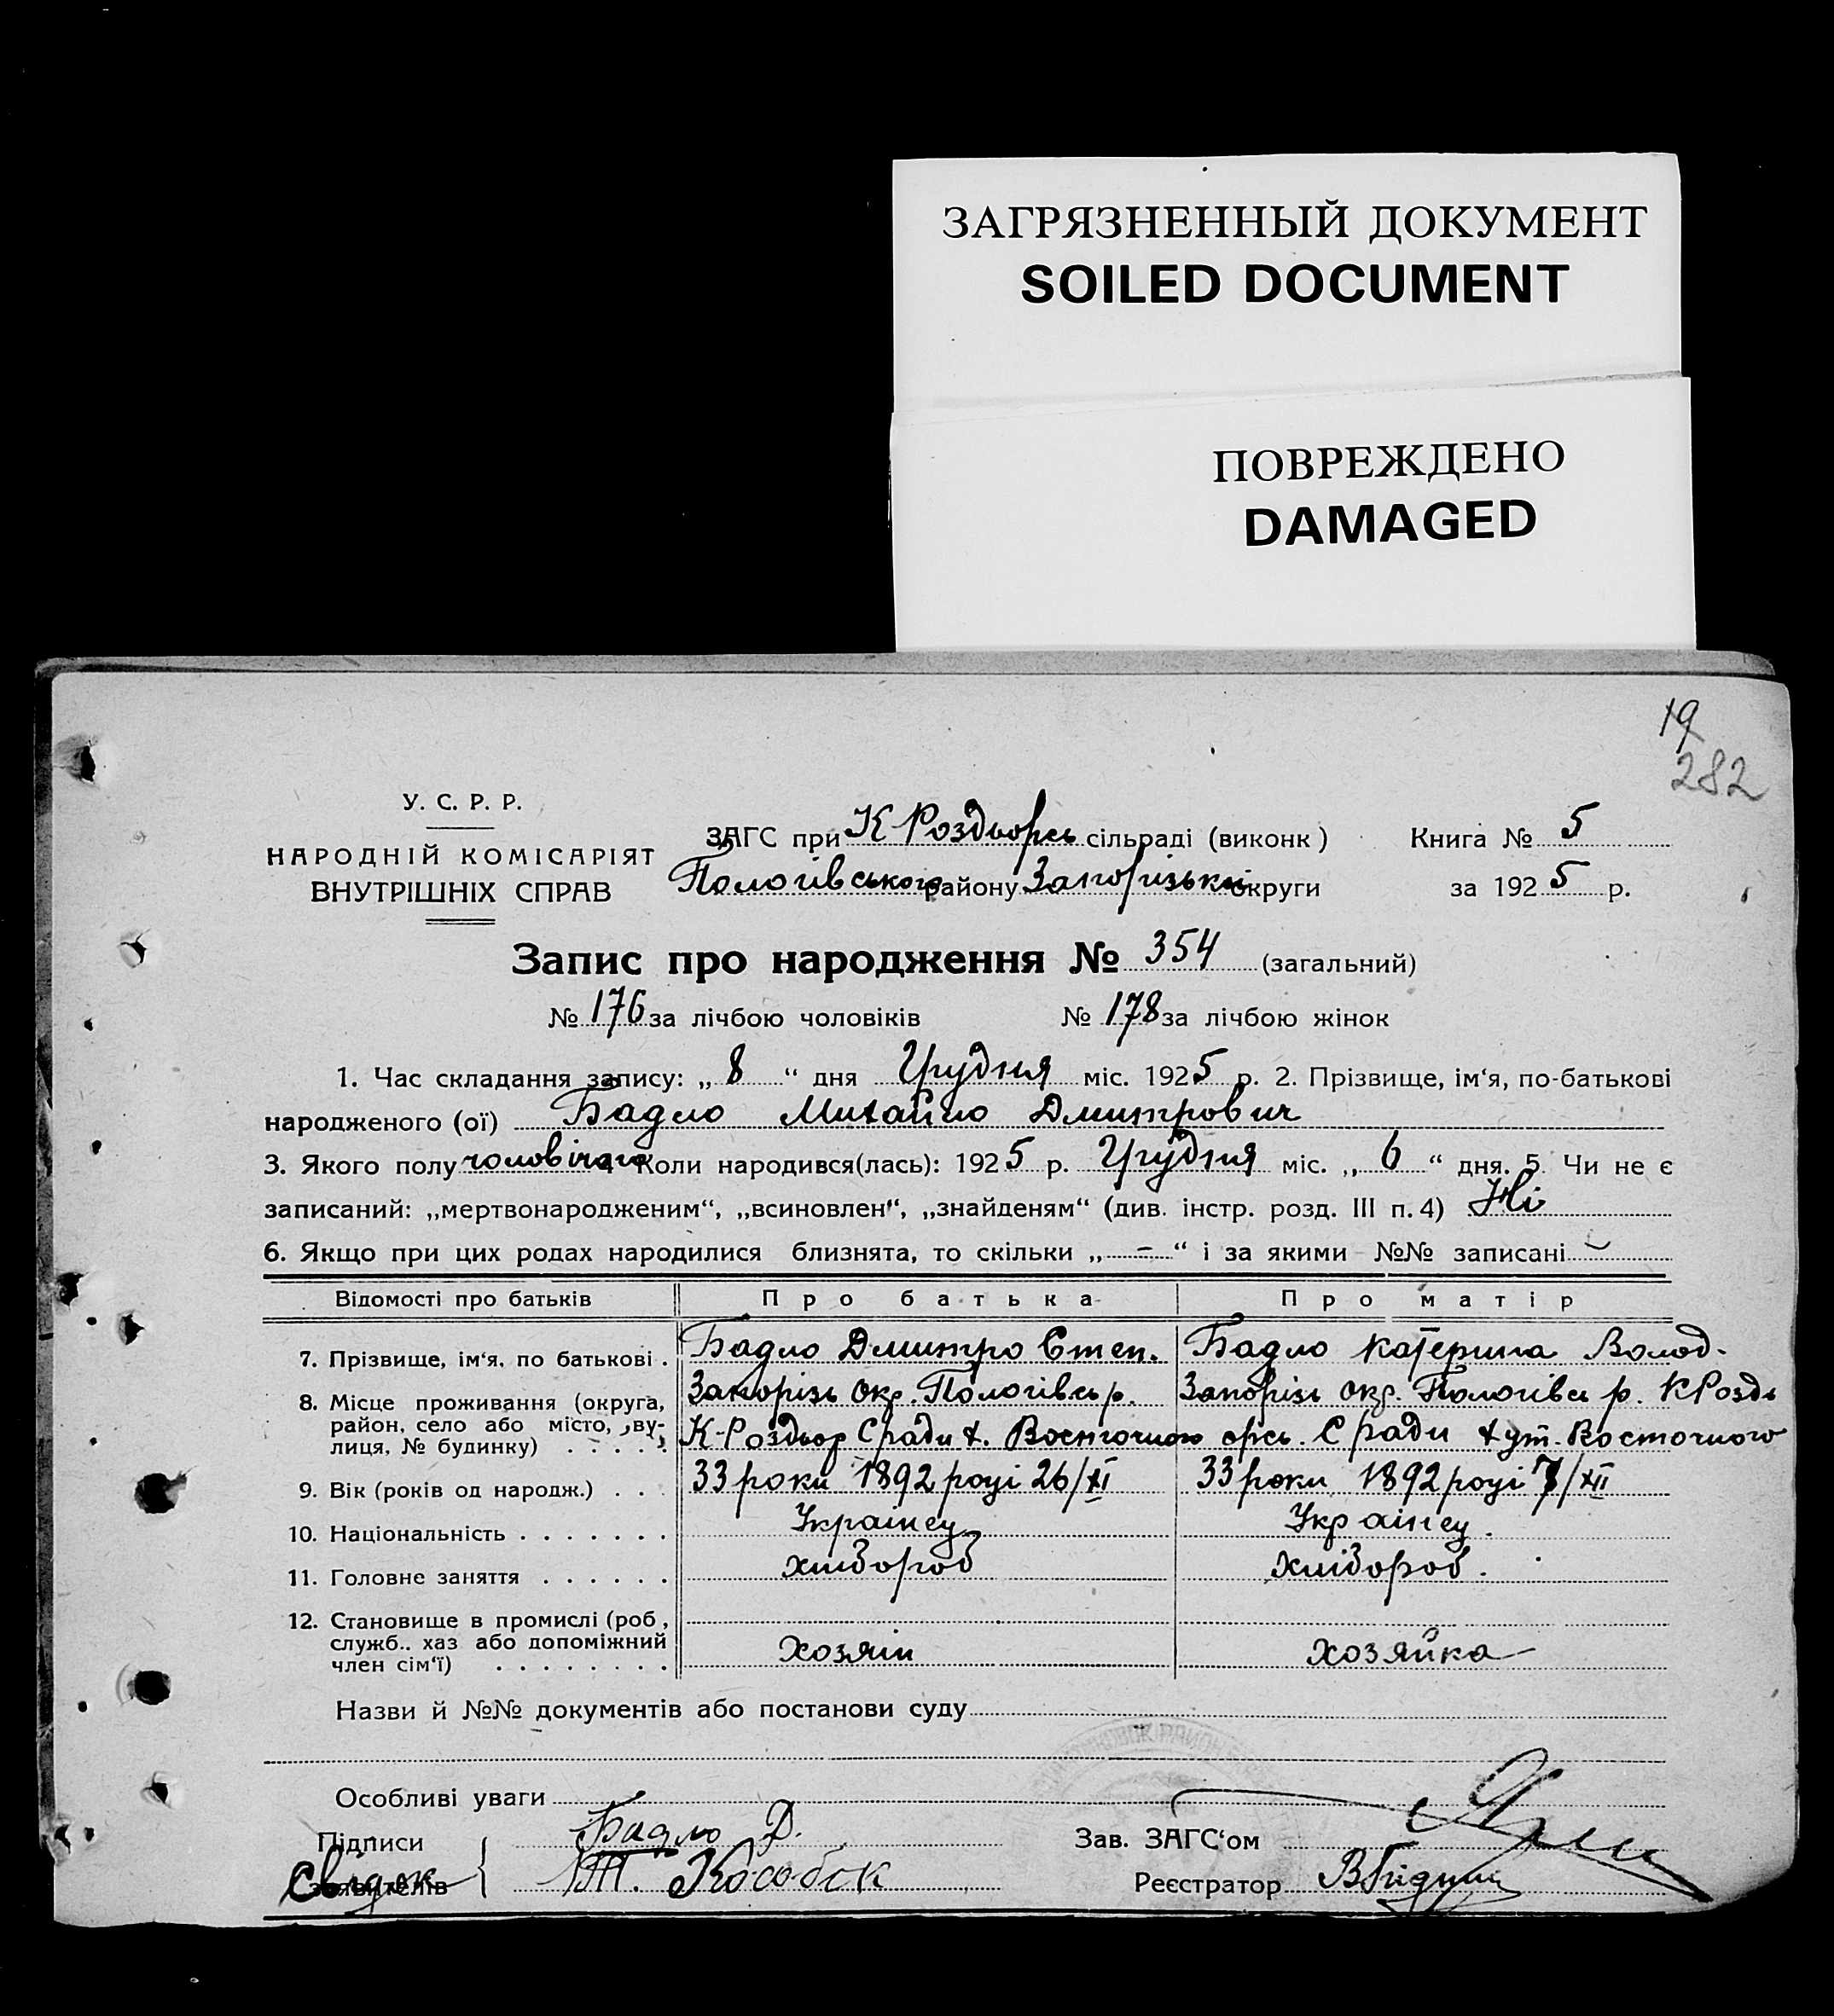 ЗАГРЯЗНЕННЫЙ ДОКУМЕНТ
SOILED DOCUMENT
ПОВРЕЖДЕНО
DAMAGED
19
282
У. С. Р. Р.
НАРОДНІЙ КОМІСАРІЯТ
ВНУТРІШНІХ СПРАВ
ЗАГС при К-Роздорсь сільраді (виконк) Книга № 5
Пологівського району Запорізької округи за 1925 р.
Запис про народження № 354 (загальний)
№ 176 за лічбою чоловіків № 178 за лічбою жінок
1. Час складання запису: „ 8 “ дня Грудня міс. 1925 р. 2. Прізвище, ім‘я, по-батькові
народженого (ої) Бадло Михайло Дмитрович
3. Якого полу чоловічого 4 Коли народився(лась): 1925 р. Грудня міс. „ 6 “ дня. 5. Чи не є
записаний: „мертвонародженим“, „всиновлен“, „знайденям“ (див. інстр. розд. III п. 4) Ні
6. Якщо при цих родах народилися близнята, то скільки „ – “ і за якими №№ записані –
Відомості про батьків Про батька Про матір
7. Прізвище, ім‘я, по батькові . Бадло Дмитро Степ. Бадло Катерина Волод.
8. Місце проживання (округа, Запорізь окр. Пологівсь р. Запорізь окр. Пологівсь р. К Розд
район, село або місто, ву-
лиця, № будинку) . . . . К-Роздор С ради х. Восточного орсь. С ради хут. Восточного
9. Вік (років од народж.) . . . 33 роки 1892 році 26/XI 33 роки 1892 році 7/XII
10. Національність . . . . . . . Українец Українец.
11. Головне заняття . . . . . . хлібороб хлібороб.
12. Становище в промислі (роб,
служб.. хаз або допоміжний
член сім‘ї) . . . . . . . . хозяін хозяйка
Назви й №№ документів або постанови суду
Особливі уваги
Підписи Бадло Д. Зав. ЗАГС‘ом
свідок заявителів Реєстратор